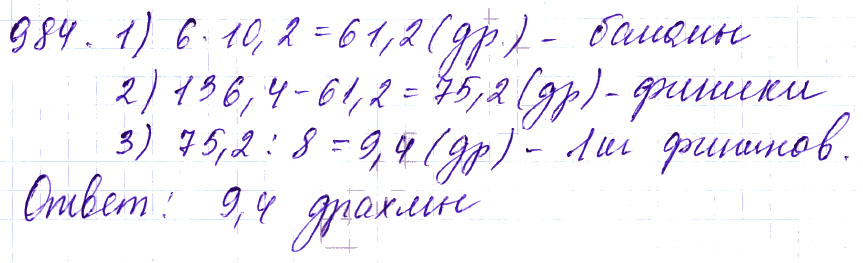 984. 1) 6 · 10,2 = 61,2 (др.) - бананы
2) 136,4 - 61,2 = 75,2 (др) - финики
3) 75,2 : 8 = 9,4 (др) - 1 кг фиников.
Ответ: 9,4 драхмы